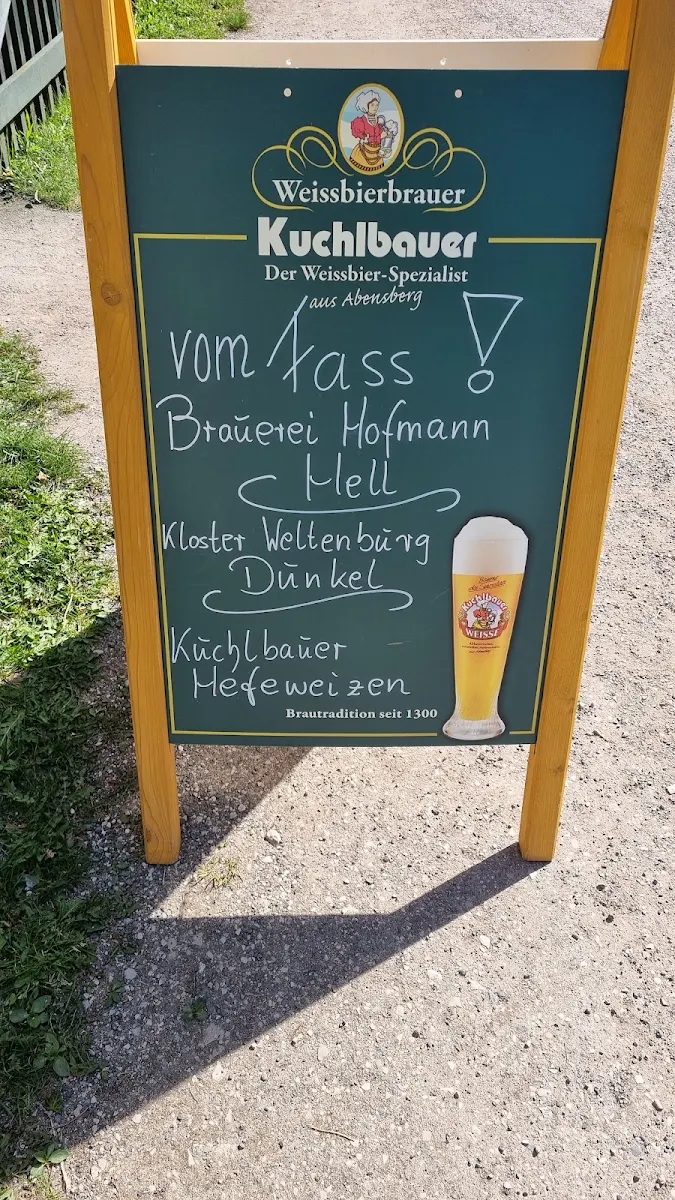 Weissbierbrauer
Kuchlbauer
Der Weissbier-Spezialist
aus Abensberg
vom Fass !
Brauerei Hofmann
Hell
Kloster Weltenburg
Dunkel
Kuchlbauer
Hefeweizen
Brautradition seit 1300
Kuchlbauer
WEISSE